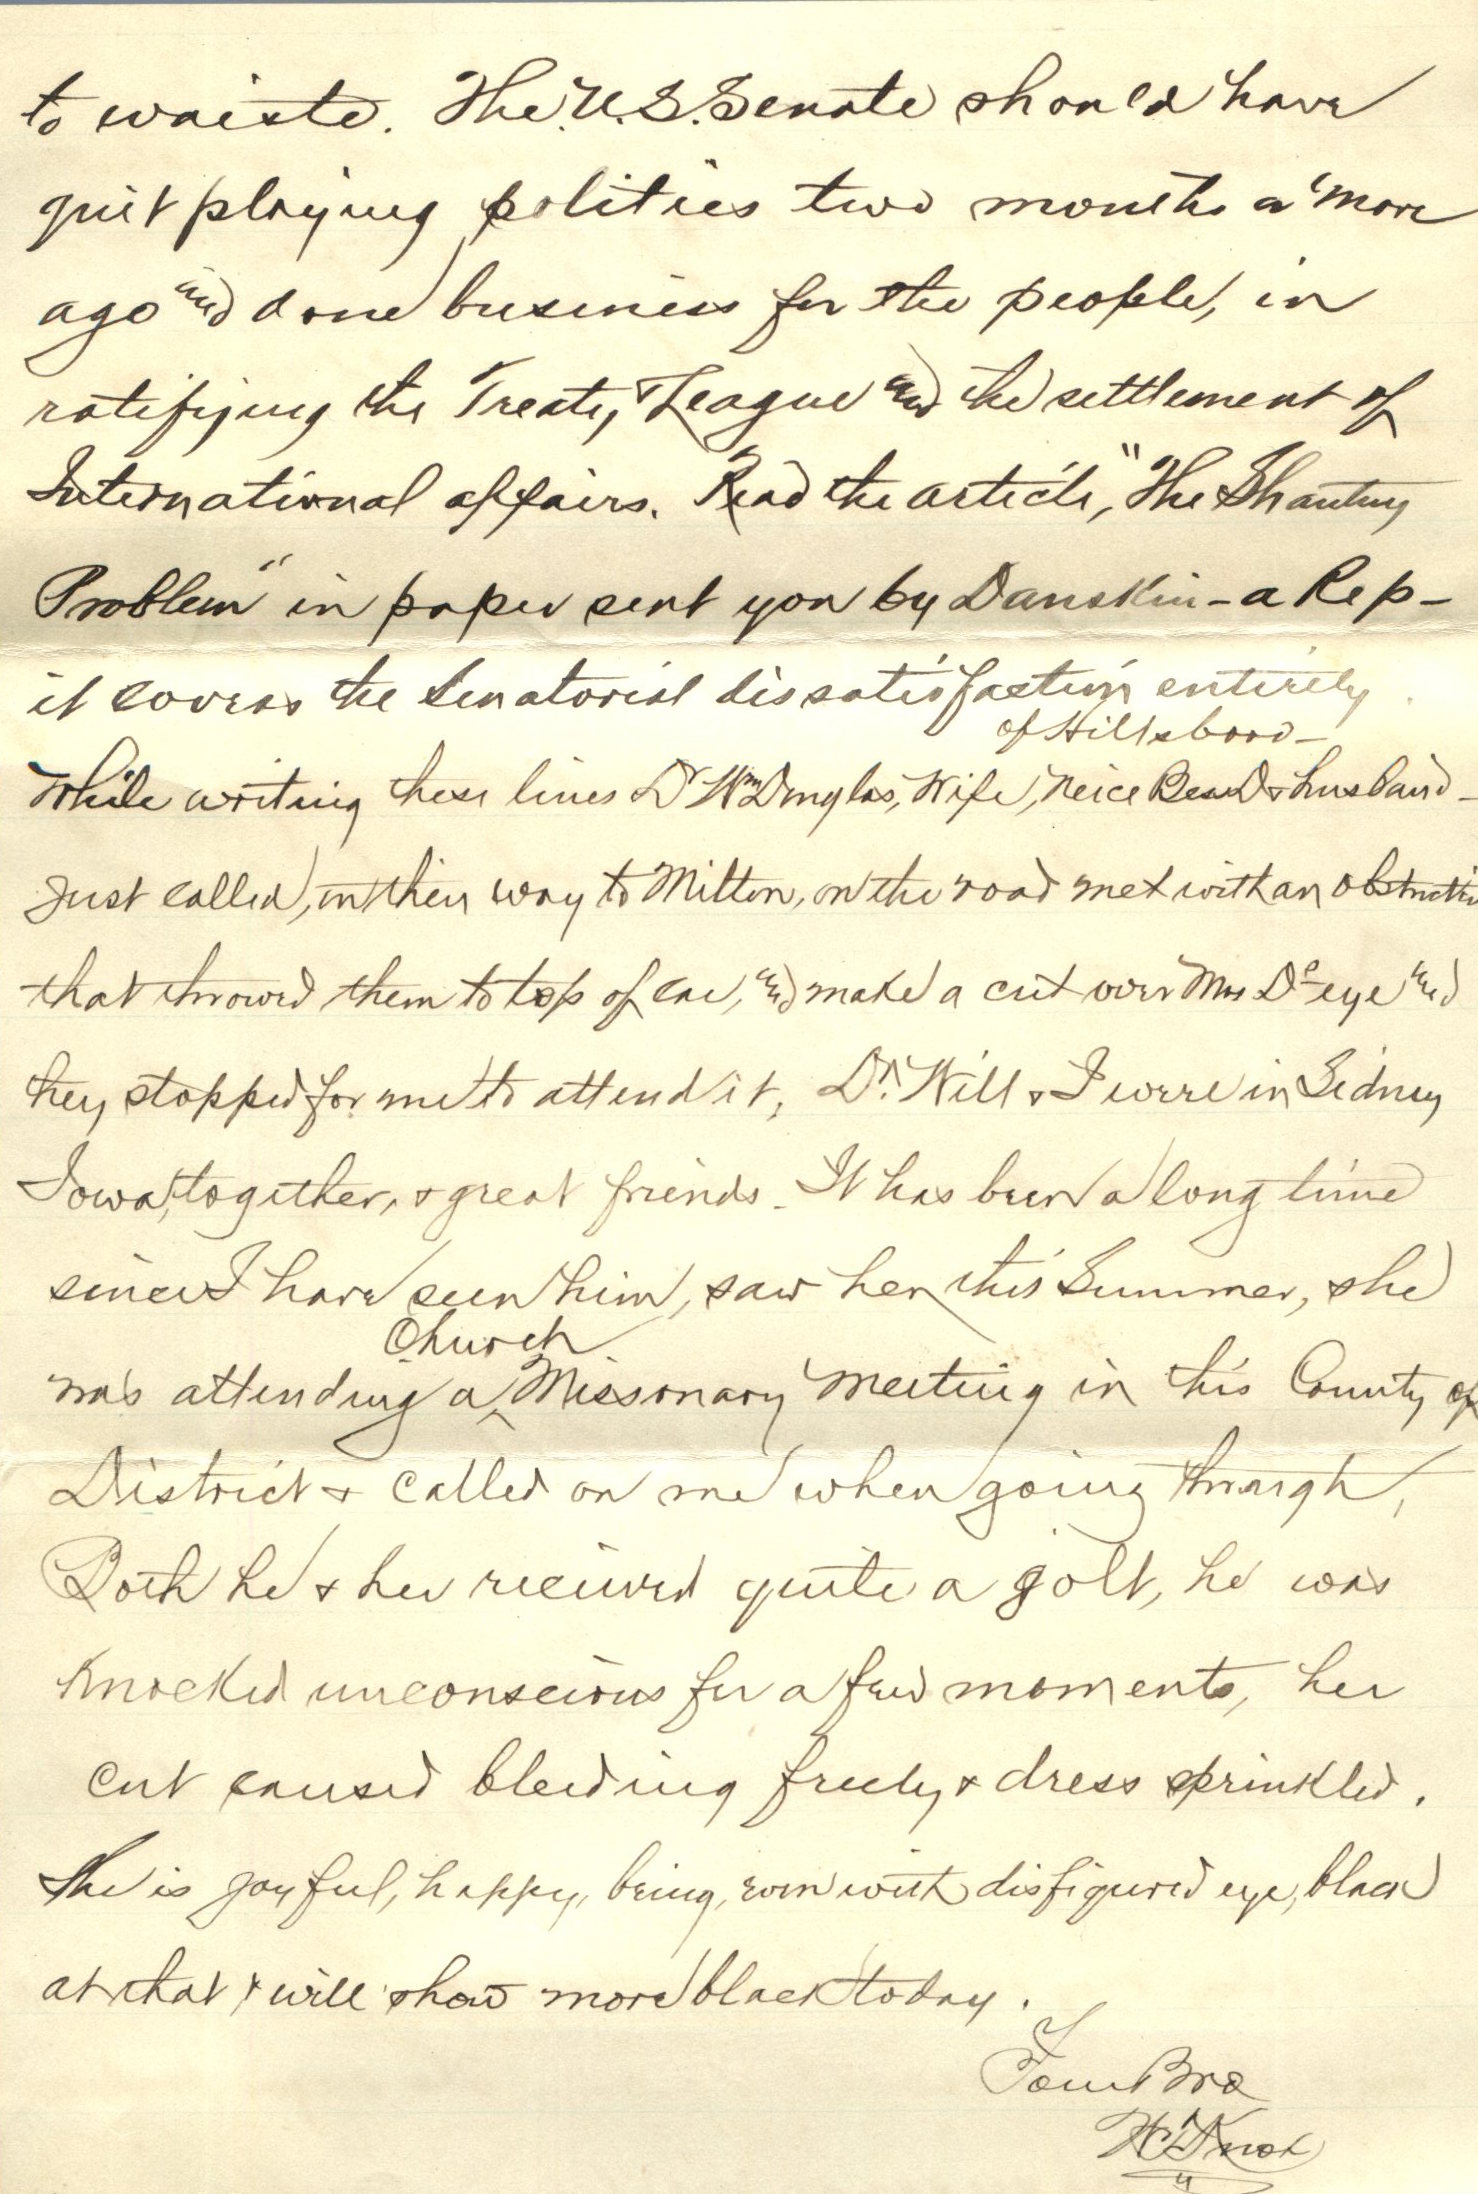 to waiste. The U.S. Senate should have
quit playing politics two months a more
ago and done business for the people, in
ratifying the Treaty, League and the settlement of
International affairs. Read the article, "The Shantung
Problem" in paper sent you by Danskin - a Rep -
it covers the Senatorial dissatisfaction entirely.
of Hillsboro -
While writing these lines Dr Wm Douglas, Wife, Neice Bess D & husband -
just called, on their way to Milton, on the road met with an obstruction
that throwed them to top of car, and make a cut over Mrs Ds eye and
they stopped for me to attend it, Dr. Will & I were in Sidney
Iowa, together, & great friends. It has been a long time
since I have seen him, saw her this Summer, she
Church
was attending a ^ Missonary meeting in this County of
District & called on me when going through,
Both he & her recieved quite a jolt, he was
knocked unconscious for a few moments, her
cut caused bleeding freely & dress sprinkled.
She is joyful, happy, being, even with disfigured eye, black
at that & will show more black today.
Your Bro
Knox